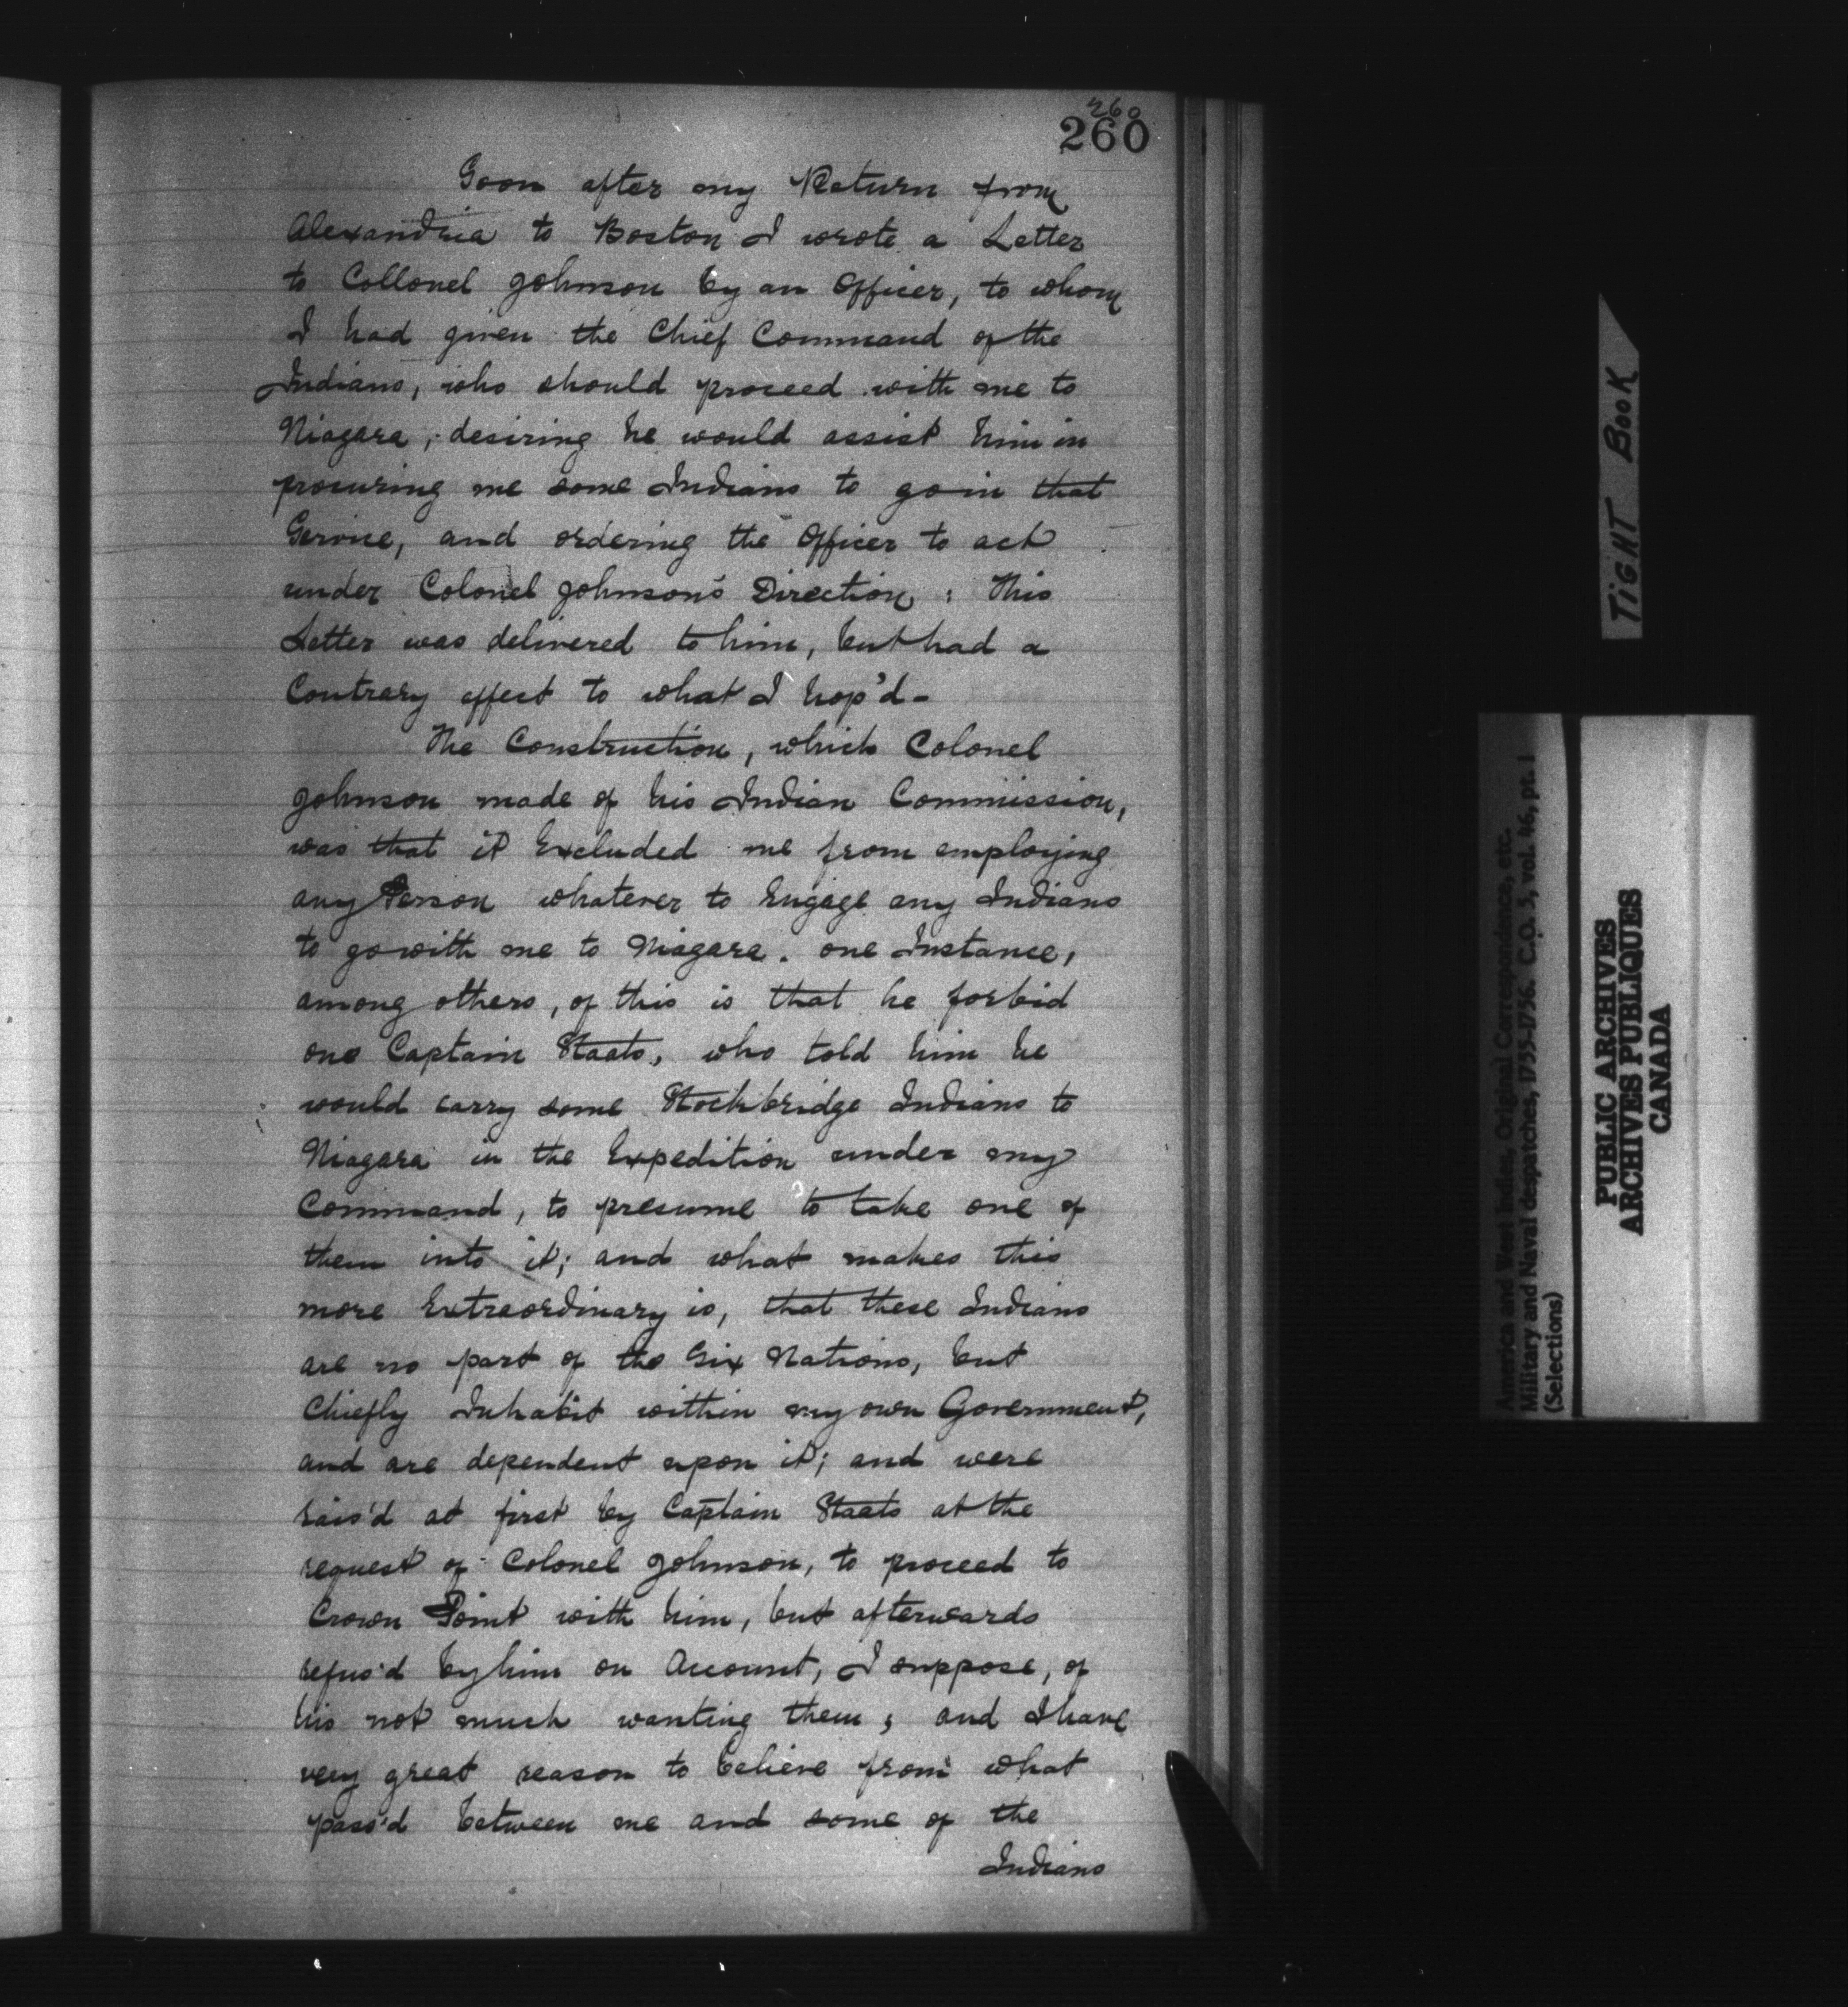 260
260
Soon after my Return from
Alexandria to Boston I wrote a Letter
to Collonel Johnson by an Officer, to whom
I had given the Chief Command of the
Indians, who should proceed with me to
Niagara, desiring he would assist him in
procuring me some Indians to go in that
Service, and ordering the Officer to act
under Colonel Johnson's Direction; This
Letter was delivered to him, but had a
Contrary effect to what I hop'd-
The Construction, which Colonel
Johnson made of his Indian Commission,
was that it Excluded me from employing
any Person whatever to Engage any Indians
to go with me to Niagara. one Instance,
among others, of this is that he forbid
one Captain Staats, who told him he
would carry some Stockbridge Indians to
Niagara in the Expedition under my
Command, to presume to take one of
them into it; and what makes this
more Extraordinary is, that these Indians
are no part of the Six Nations, but
Chiefly Inhabit within my own Government,
and are dependent upon it; and were
rais'd at first by Captain Staats at the
request of Colonel Johnson, to proceed to
Crown Point with him, but afterwards
refus'd by him on Account, I suppose, of
his not much wanting them; and I have
very great reason to believe from what
pass'd between me and some of the
Indians
TIGHT BOOK
America and West Indies, Original Correspondence, etc.
Military and Naval despatches, 1755-1756. C.O. 5, vol. 46, pt. 1
(Selections)
PUBLIC ARCHIVES
ARCHIVES PUBLIQUES
CANADA